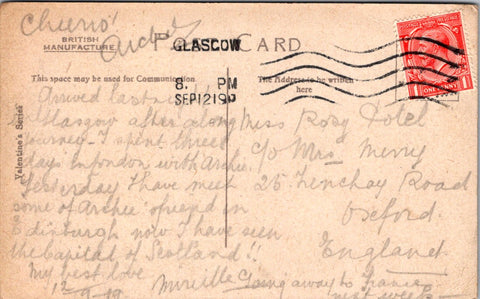 Cheerio!
BRITISH
MANUFACTURE
POST CARD
GLASGOW
8. PM
SEP 12 19
This space may be used for Communication
The Address to be written
here
ONE PENNY
Valentine's Series
Arrived last
Glasgow after a long
journey - I spent three
days in London with Archie.
Yesterday I have meet
some of Archie' friend in
Edinburgh now I have seen
the Capital of Scotland!!
My best love
12-9-19
Mireille
Going away to France
next week
Miss Rosy Hotel
c/o Mrs Merry
25 Road
Oxford.
England